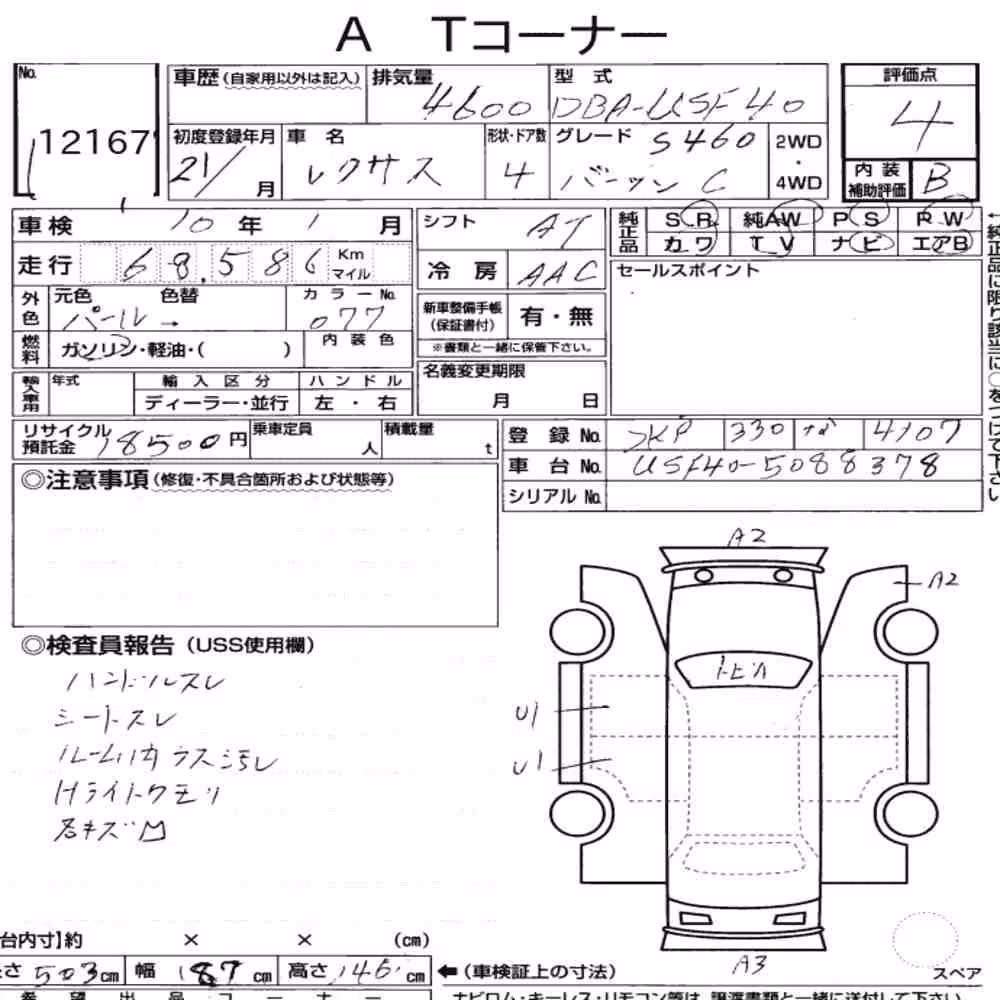 A Tコーナー
No. 12167
車歴(自家用以外は記入) 排気量 4600 型式 DBA-USF40
初度登録年月 21/ 月 車名 レクサス 形状・ドア数 4 グレード S460 バージョンC 2WD・4WD
評価点 4
内装補助評価 B
車検 10年 1月
走行 68,586 Km マイル
外色 元色 パール→ 色替 カラーNo. 077
燃料 ガソリン・軽油・( ) 内装色
輸入車用 年式 輸入区分 ハンドル
ディーラー・並行 左・右
シフト AT
冷房 AAC
新車整備手帳(保証書付) 有・無
※書類と一緒に保管下さい。
名義変更期限
月 日
純正品 SR 純AW PS PW
カワ TV ナビ エアB
セールスポイント
←純正品に限り該当に○をつけて下さい
リサイクル預託金 18500円 乗車定員 人 積載量 t
登録No. 330 4107
車台No. USF40-5088378
シリアルNo.
◎注意事項(修復・不具合箇所および状態等)
◎検査員報告(USS使用欄)
ハンドルスレ
シートスレ
ルーム内ガラス汚レ
Hライトクモリ
各キズ凹
A2
A2
トビA
U1
U1
A3
スペア
台内寸】約 × × (cm)
さ 503cm 幅 187cm 高さ 146cm ←(車検証上の寸法)
希望出品コーナー
ナビロム・キーレス・リモコン等は、譲渡書類と一緒に送付して下さい。